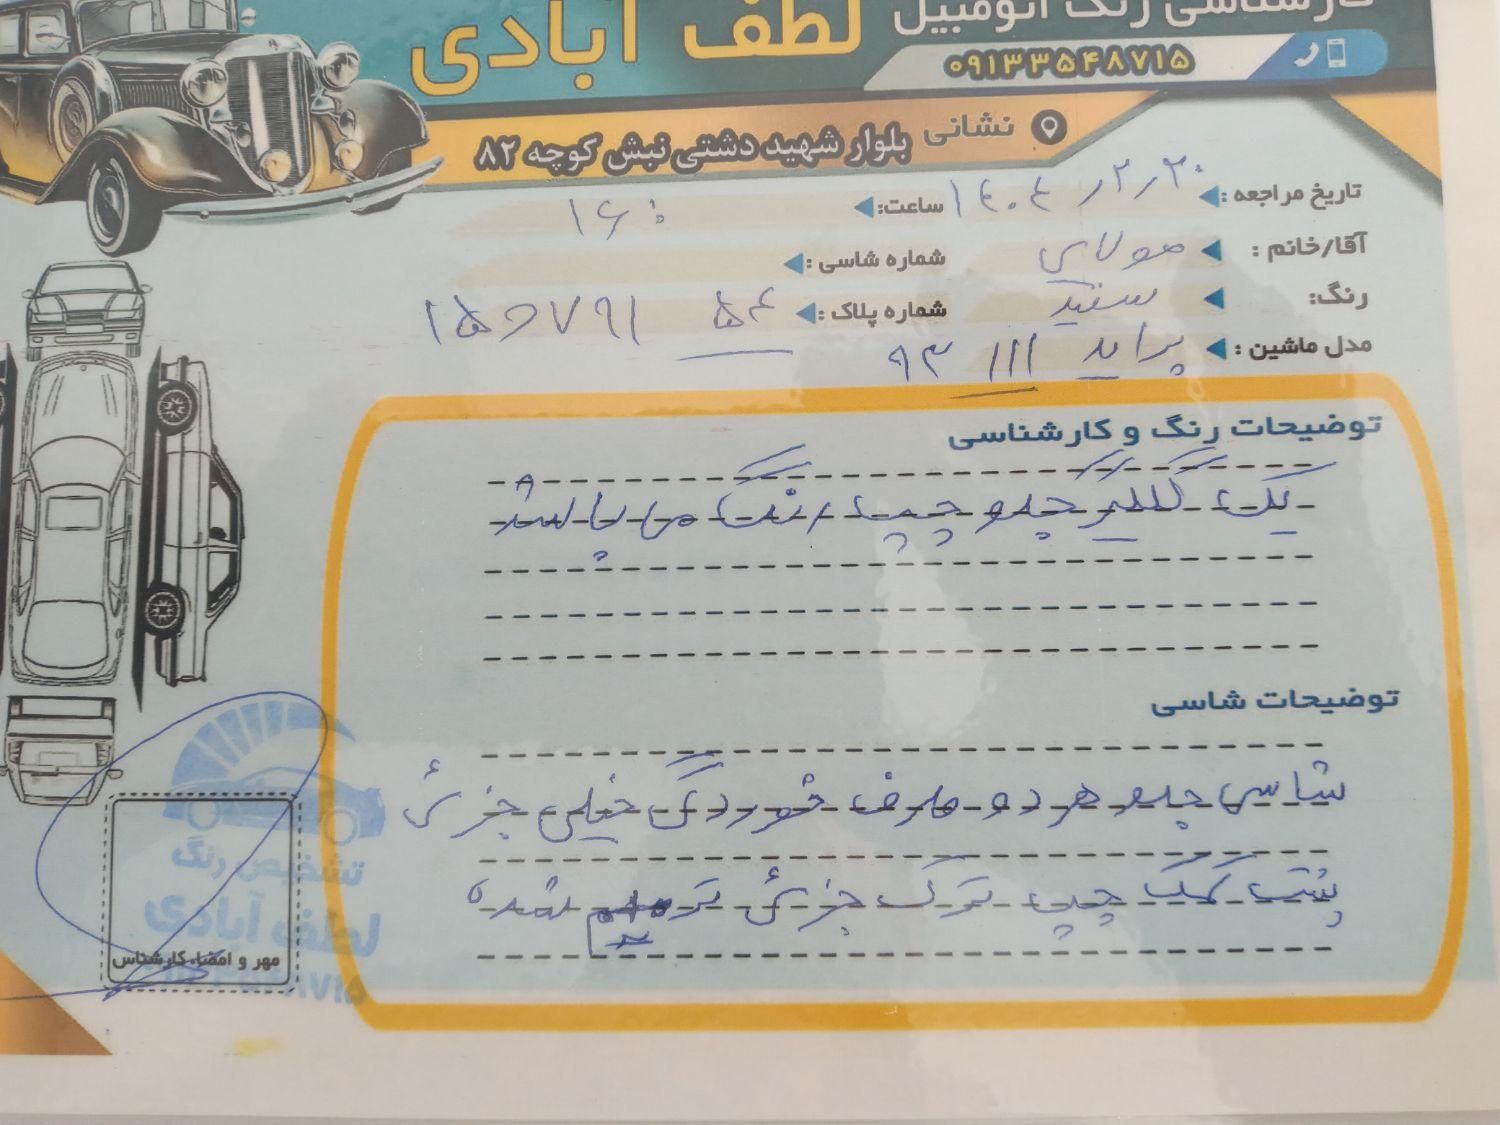 کارشناسی رنگ اتومبیل
لطف آبادی
۰۹۱۳۳۵۴۸۷۱۵
نشانی بلوار شهید دشتی نبش کوچه ۸۲
تاریخ مراجعه: ۱۴۰۴/۲/۲۰ ساعت: ۱۶:
آقا/خانم: مولای شماره شاسی:
رنگ: سفید شماره پلاک: ۵۴
مدل ماشین: پراید ۱۱۱ ۹۳
توضیحات رنگ و کارشناسی
یک گلگیر جلو چپ رنگ می باشد
توضیحات شاسی
شاسی جلو هر دو طرف خوردگی خیلی جزئی
پشت کمک چپ ترک جزئی ترمیم شده
تشخیص رنگ
لطف آبادی
مهر و امضاء کارشناس